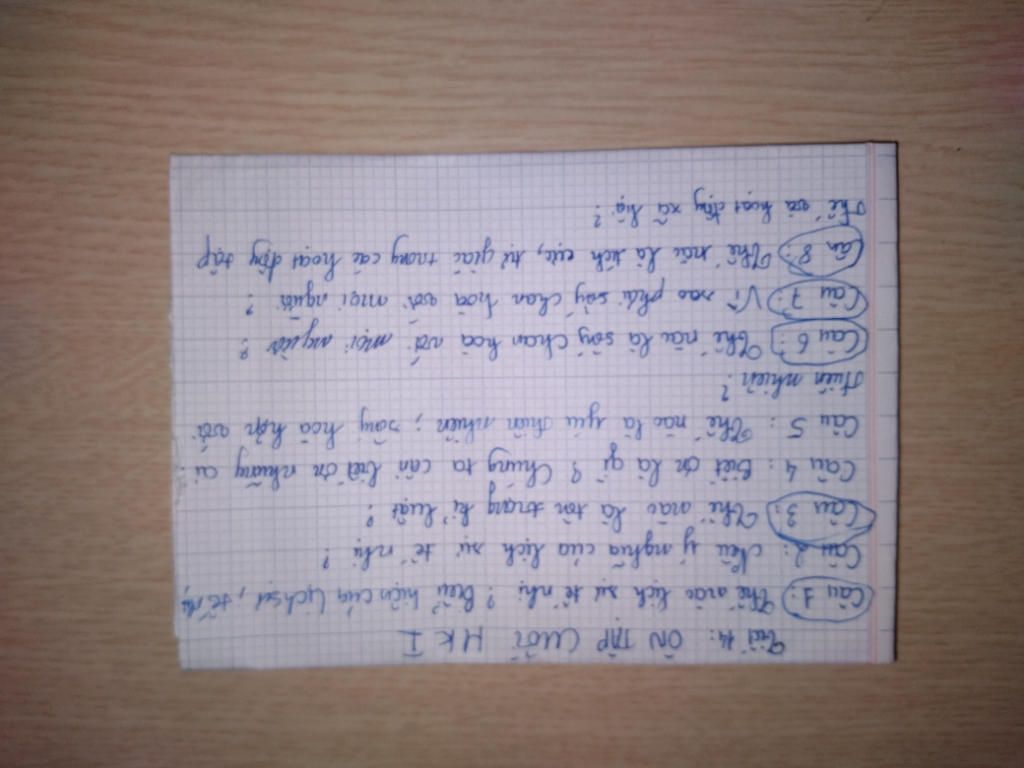 Tiết 14: ÔN TẬP CUỐI HK I
Câu 1: Thế nào lịch sự tế nhị? Biểu hiện của lịch sự, tế nhị
Câu 2: Nêu ý nghĩa của lịch sự tế nhị?
Câu 3: Thế nào là tôn trọng kỉ luật?
Câu 4: Biết ơn là gì? Chúng ta cần biết ơn những ai
Câu 5: Thế nào là yêu thiên nhiên; sống hoà hợp với
thiên nhiên?
Câu 6: Thế nào là sống chan hoà với mọi người?
Câu 7: Vì sao phải sống chan hoà với mọi người?
Câu 8: Thế nào là tích cực, tự giác trong các hoạt động tập
thể và hoạt động xã hội?